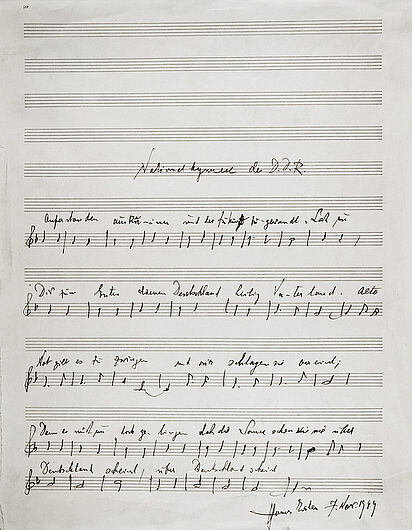 Nationalhymne der D.D.R.
Auferstanden aus Ruinen und der Zukunft zugewandt. Laß uns
Dir zum Guten dienen Deutschland Einig Vaterland. Alte
Not gilt es zu zwingen und wir zwingen sie vereint;
Denn es muß uns doch gelingen daß die Sonne schön wie nie über
Deutschland scheint, über Deutschland scheint
Hanns Eisler 7. Nov. 1949